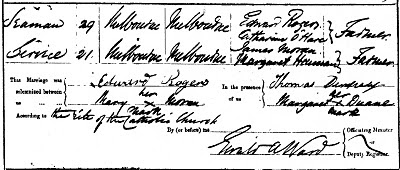 Seaman 29 Melbourne Melbourne Edward Rogers Catherine O'Hare Farmer
Service 21 Melbourne Melbourne James Moran Margaret Farmer
This Marriage was solemnized between us Edward Rogers
Mary her x mark Moran
In the presence of us Thomas
Margaret her x mark Duane
According to the Rites of the Catholic Church
By (or before) me Ward
Officiating Minister
or
Deputy Registrar.